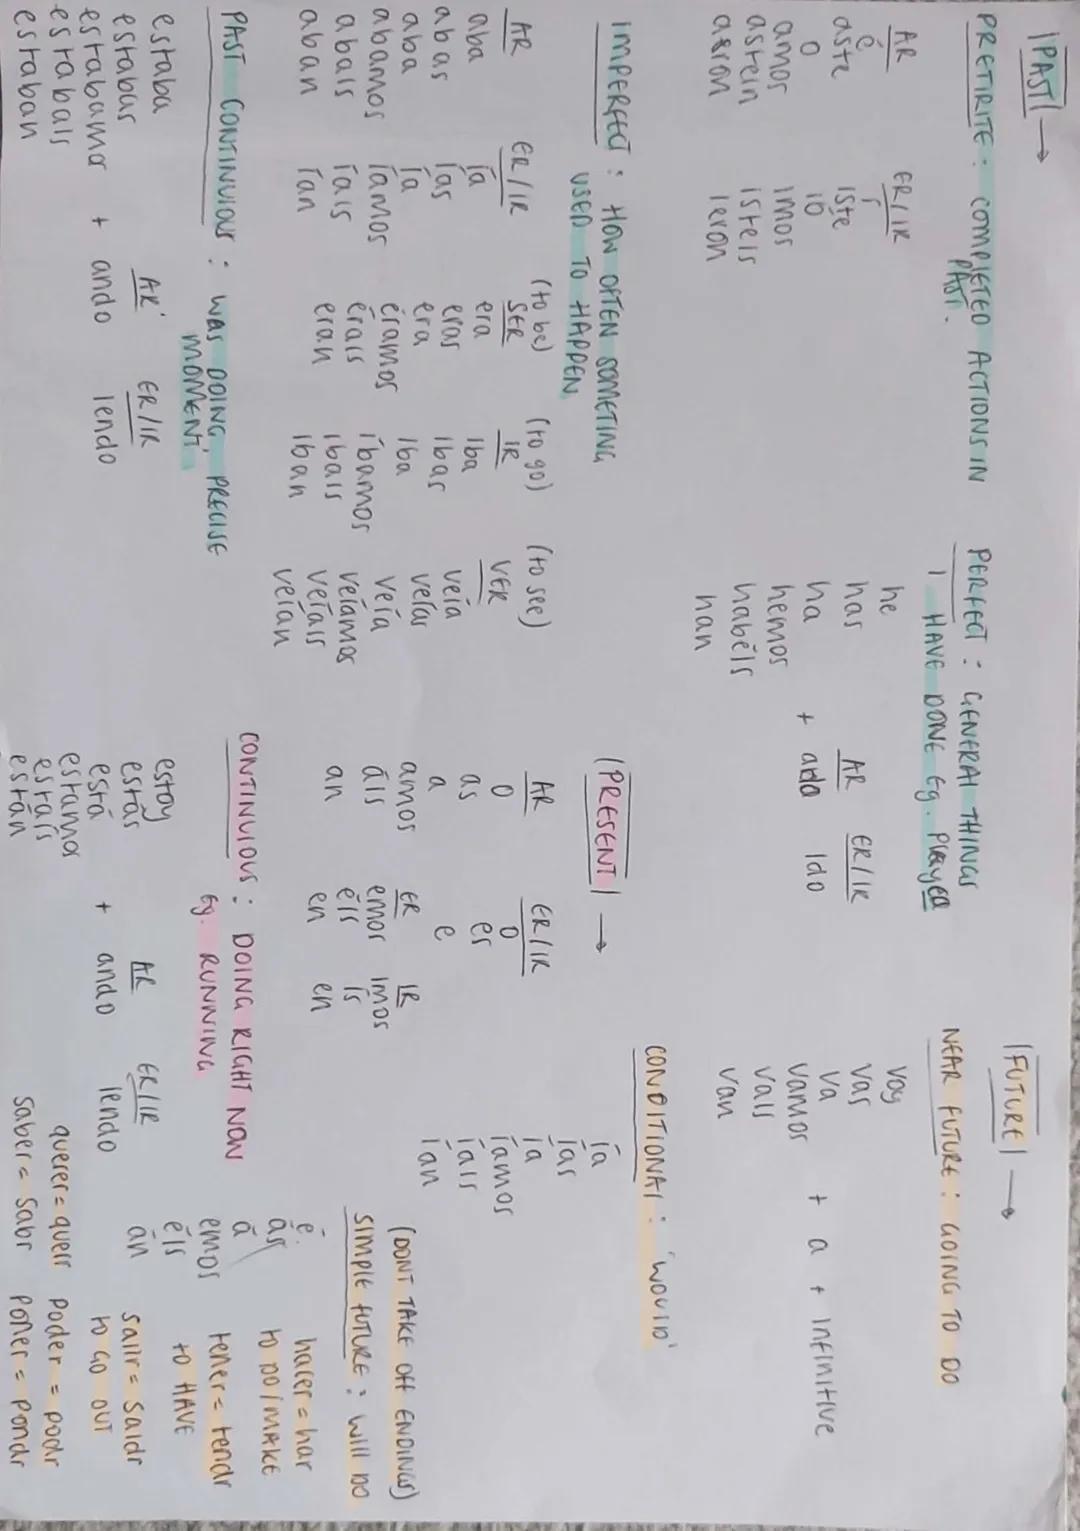 PAST →
PRETIRITE : COMPLETED ACTIONS IN
PAST.
AR ER/IR
é í
aste iste
ó ió
amos imos
asteis isteis
aron ieron
PERFECT : GENERAL THINGS
I HAVE DONE Eg. Played
he
has
ha
hemos
habéis
han
AR ER/IR
+ ado ido
IMPERFECT : HOW OFTEN SOMETING
USED TO HAPPEN
(to be) (to go) (to see)
AR ER/IR SER IR VER
aba ía era iba veía
abas ías eras ibas veías
aba ía era iba veía
abamos íamos éramos íbamos veíamos
abais íais érais ibais veíais
aban ían eran iban veían
PAST CONTINUIOUS : WAS DOING, PRECISE
MOMENT
estaba
estabas
estabamos
estabais
estaban
AR ER/IR
+ ando iendo
PRESENT →
AR ER/IR
o o
as es
a e
ER IR
amos emos imos
áis éis ís
an en en
CONTINUIOUS : DOING RIGHT NOW
Eg. RUNNING
estoy
estás
está
estamos
estáis
están
AR ER/IR
+ ando iendo
FUTURE →
NEAR FUTURE : GOING TO DO
voy
vas
va
vamos
vais
van
+ a + infinitive
CONDITIONAL : 'WOULD'
ía
ías
ía
íamos
íais
ían
(DONT TAKE OFF ENDINGS)
SIMPLE FUTURE : WILL DO
é
ás
á
emos
éis
án
hacer = har
to DO / MAKE
tener = tendr
to HAVE
salir = saldr
to GO OUT
querer = querr poder = podr
saber = sabr poner = pondr